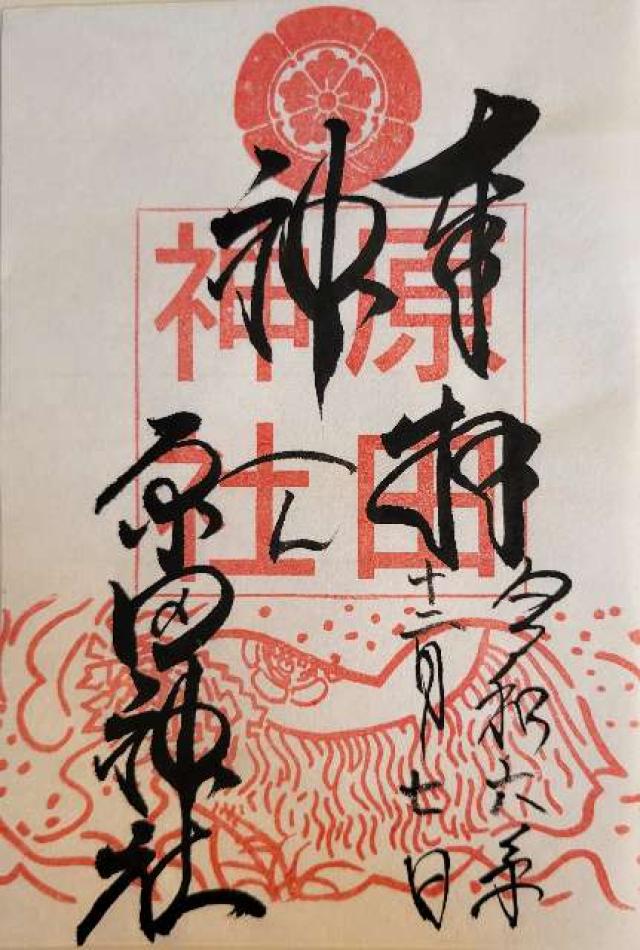 奉拝
令和六年
十二月七日
神
原田神社
原田
神社